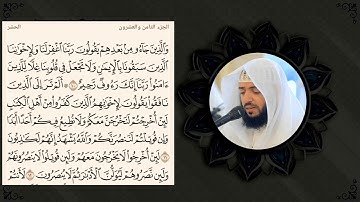 الجزء الثامن والعشرون
الحشر
وَالَّذِينَ جَاءُو مِنْ بَعْدِهِمْ يَقُولُونَ رَبَّنَا اغْفِرْ لَنَا وَلِإِخْوَانِنَا
الَّذِينَ سَبَقُونَا بِالْإِيمَانِ وَلَا تَجْعَلْ فِي قُلُوبِنَا غِلًّا لِلَّذِينَ
ءَامَنُوا رَبَّنَا إِنَّكَ رَءُوفٌ رَحِيمٌ ۞ أَلَمْ تَرَ إِلَى الَّذِينَ
نَافَقُوا يَقُولُونَ لِإِخْوَانِهِمُ الَّذِينَ كَفَرُوا مِنْ أَهْلِ الْكِتَابِ
لَئِنْ أُخْرِجْتُمْ لَنَخْرُجَنَّ مَعَكُمْ وَلَا نُطِيعُ فِيكُمْ أَحَدًا أَبَدًا
وَإِنْ قُوتِلْتُمْ لَنَنْصُرَنَّكُمْ وَاللَّهُ يَشْهَدُ إِنَّهُمْ لَكَاذِبُونَ
لَئِنْ أُخْرِجُوا لَا يَخْرُجُونَ مَعَهُمْ وَلَئِنْ قُوتِلُوا لَا يَنْصُرُونَهُمْ
وَلَئِنْ نَصَرُوهُمْ لَيُوَلُّنَّ الْأَدْبَارَ ثُمَّ لَا يُنْصَرُونَ لَأَنْتُمْ